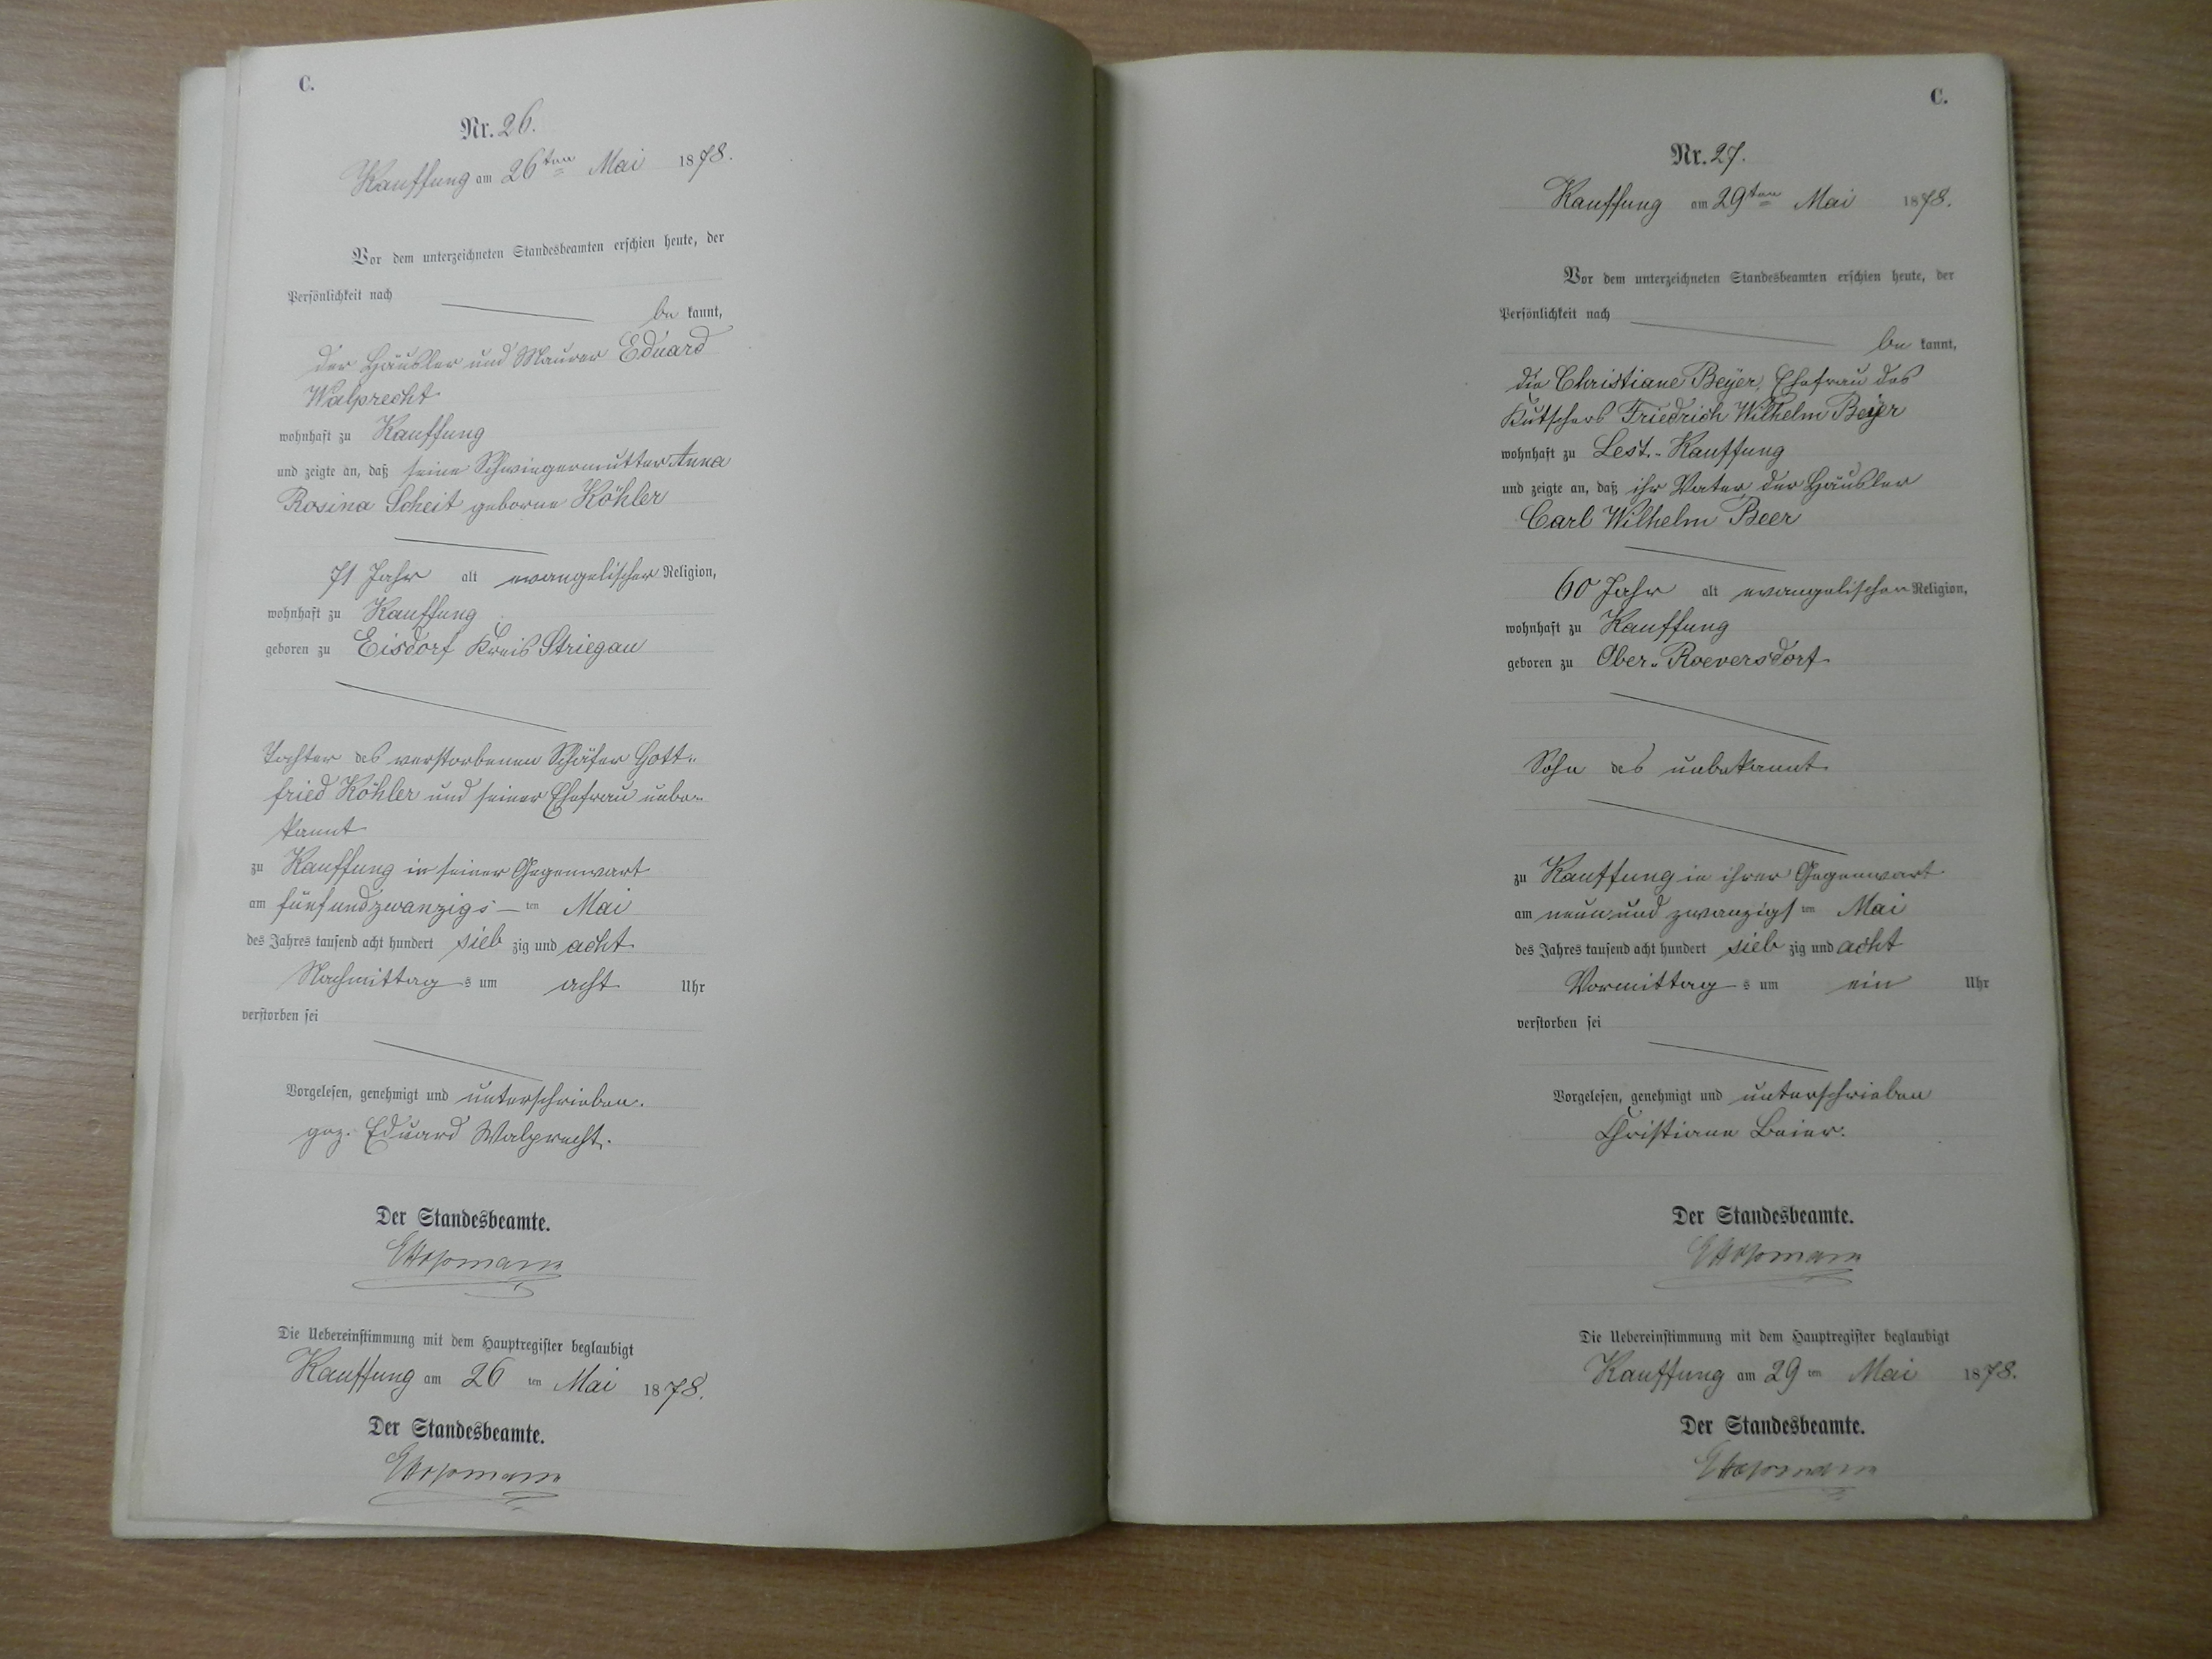 C.
Nr. 26.
Kauffung am 26ten Mai 1878.
Vor dem unterzeichneten Standesbeamten erschien heute, der
Persönlichkeit nach
be kannt,
der Häusler und Maurer Eduard
Walprecht
wohnhaft zu Kauffung
und zeigte an, daß seine Schwiegermutter Anna
Rosina Scheit geborne Köhler
71 Jahr alt evangelischer Religion,
wohnhaft zu Kauffung
geboren zu Eisdorf Kreis Striegau
Tochter des verstorbenen Schäfer Gott-
fried Köhler und seiner Ehefrau unbe-
kannt
zu Kauffung in seiner Gegenwart
am fünfundzwanzigs ten Mai
des Jahres tausend acht hundert sieb zig und acht
Nachmittag s um acht Uhr
verstorben sei
Vorgelesen, genehmigt und unterschrieben.
gez. Eduard Walprecht.
Der Standesbeamte.
Die Uebereinstimmung mit dem Hauptregister beglaubigt
Kauffung am 26 ten Mai 1878.
Der Standesbeamte.
C.
Nr. 27.
Kauffung am 29ten Mai 1878.
Vor dem unterzeichneten Standesbeamten erschien heute, der
Persönlichkeit nach
be kannt,
die Christiane Beyer, Ehefrau des
Kutschers Friedrich Wilhelm Beyer
wohnhaft zu Lest.-Kauffung
und zeigte an, daß ihr Vater, der Häusler
Carl Wilhelm Beer
60 Jahr alt evangelischer Religion,
wohnhaft zu Kauffung
geboren zu Ober-Roeversdorf
Sohn des unbekannt
zu Kauffung in ihrer Gegenwart
am neunundzwanzigs ten Mai
des Jahres tausend acht hundert sieb zig und acht
Vormittag s um ein Uhr
verstorben sei
Vorgelesen, genehmigt und unterschrieben
Christiane Beier.
Der Standesbeamte.
Die Uebereinstimmung mit dem Hauptregister beglaubigt
Kauffung am 29 ten Mai 1878.
Der Standesbeamte.